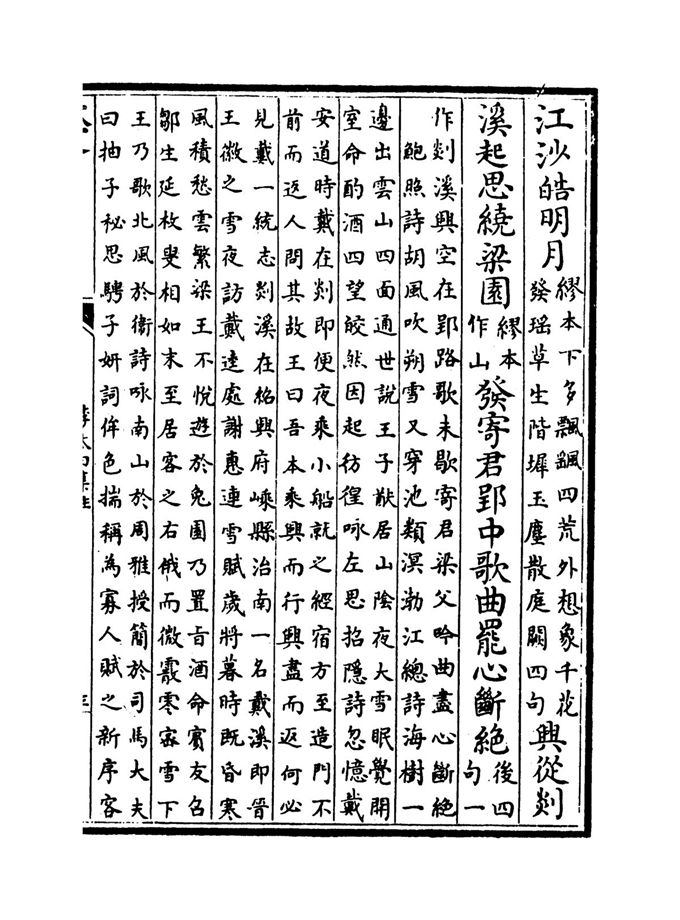 江沙皓明月繆本下多飄颻四荒外想象千花
發瑶草生階墀玉塵散庭闕四句興從剡
溪起思繞梁園繆本作山發寄君郢中歌曲罷心斷絶後四句一
作剡溪興空在郢路歌未歇寄君梁父吟曲盡心斷絶
鮑照詩胡風吹朔雪又穿池類溟渤江總詩海樹一
邊出雲山四面通世說王子猷居山陰夜大雪眠覺開
室命酌酒四望皎然因起彷徨咏左思招隱詩忽憶戴
安道時戴在剡即便夜乘小船就之經宿方至造門不
前而返人問其故王曰吾本乘興而行興盡而返何必
見戴一統志剡溪在紹興府嵊縣治南一名戴溪即晉
王徽之雪夜訪戴逵處謝惠連雪賦歲將暮時既昏寒
風積愁雲繁梁王不悦遊於兔園乃置旨酒命賓友召
鄒生延枚叟相如末至居客之右俄而微霰零密雪下
王乃歌北風於衛詩咏南山於周雅授簡於司馬大夫
曰抽子秘思騁子妍詞侔色揣稱為寡人賦之新序客